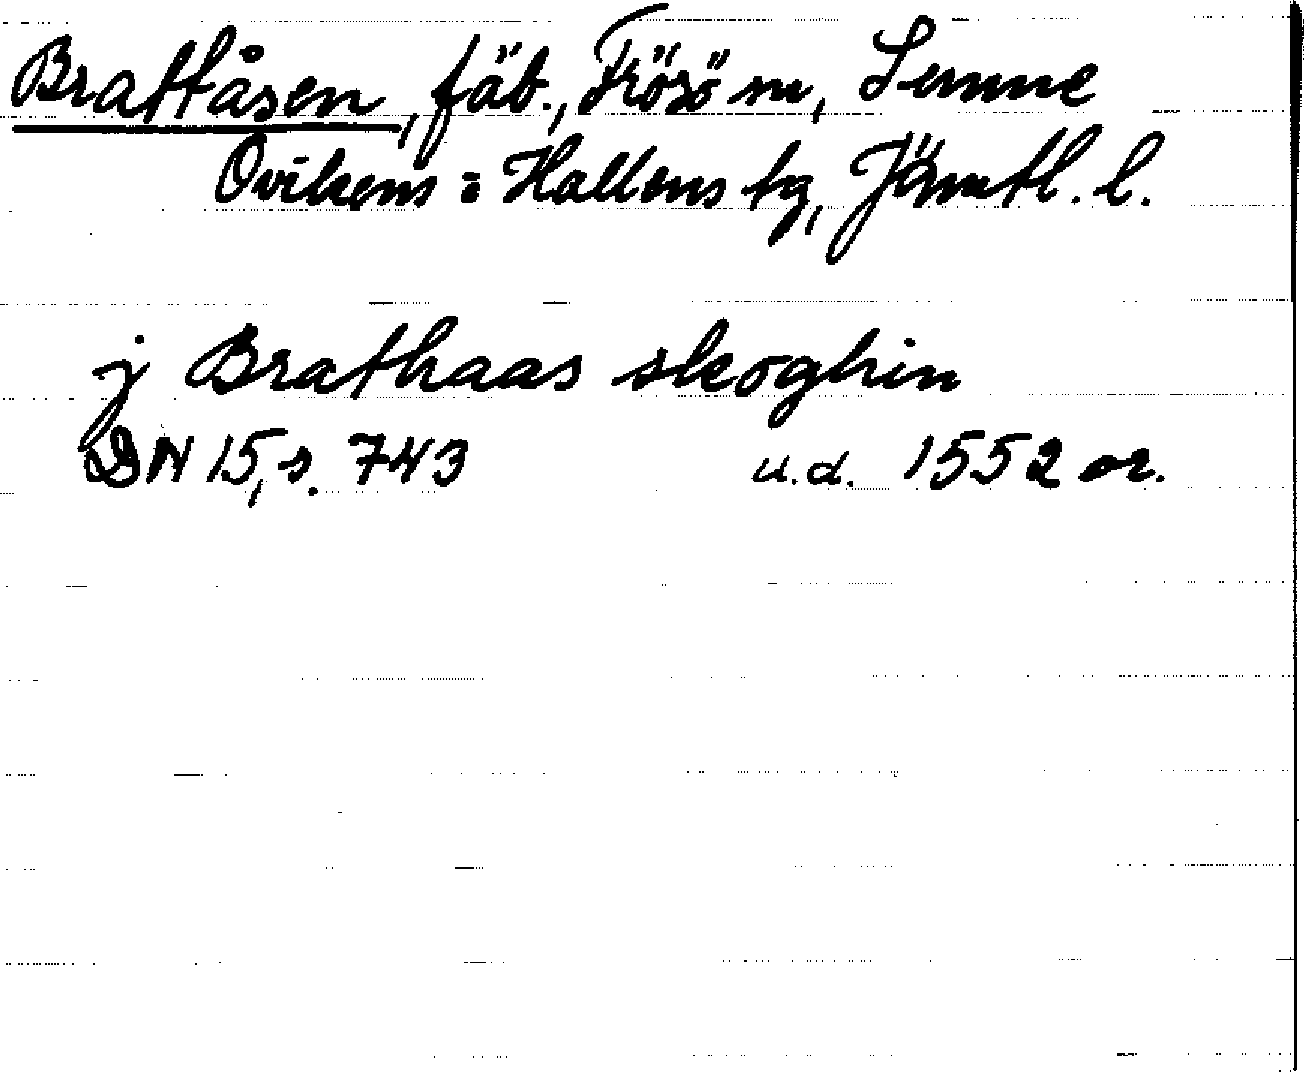 Brattåsen, fäb., Frösö sn, Sunne
Ovikens o Hallens tg, Jämtl. l.
j Brathaas skoghin
DN 15, s. 743 u.d. 1552 or.